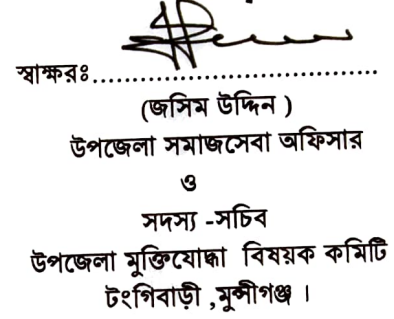 স্বাক্ষরঃ.......................................
(জসিম উদ্দিন )
উপজেলা সমাজসেবা অফিসার
ও
সদস্য -সচিব
উপজেলা মুক্তিযোদ্ধা বিষয়ক কমিটি
টংগিবাড়ী ,মুন্সীগঞ্জ ।